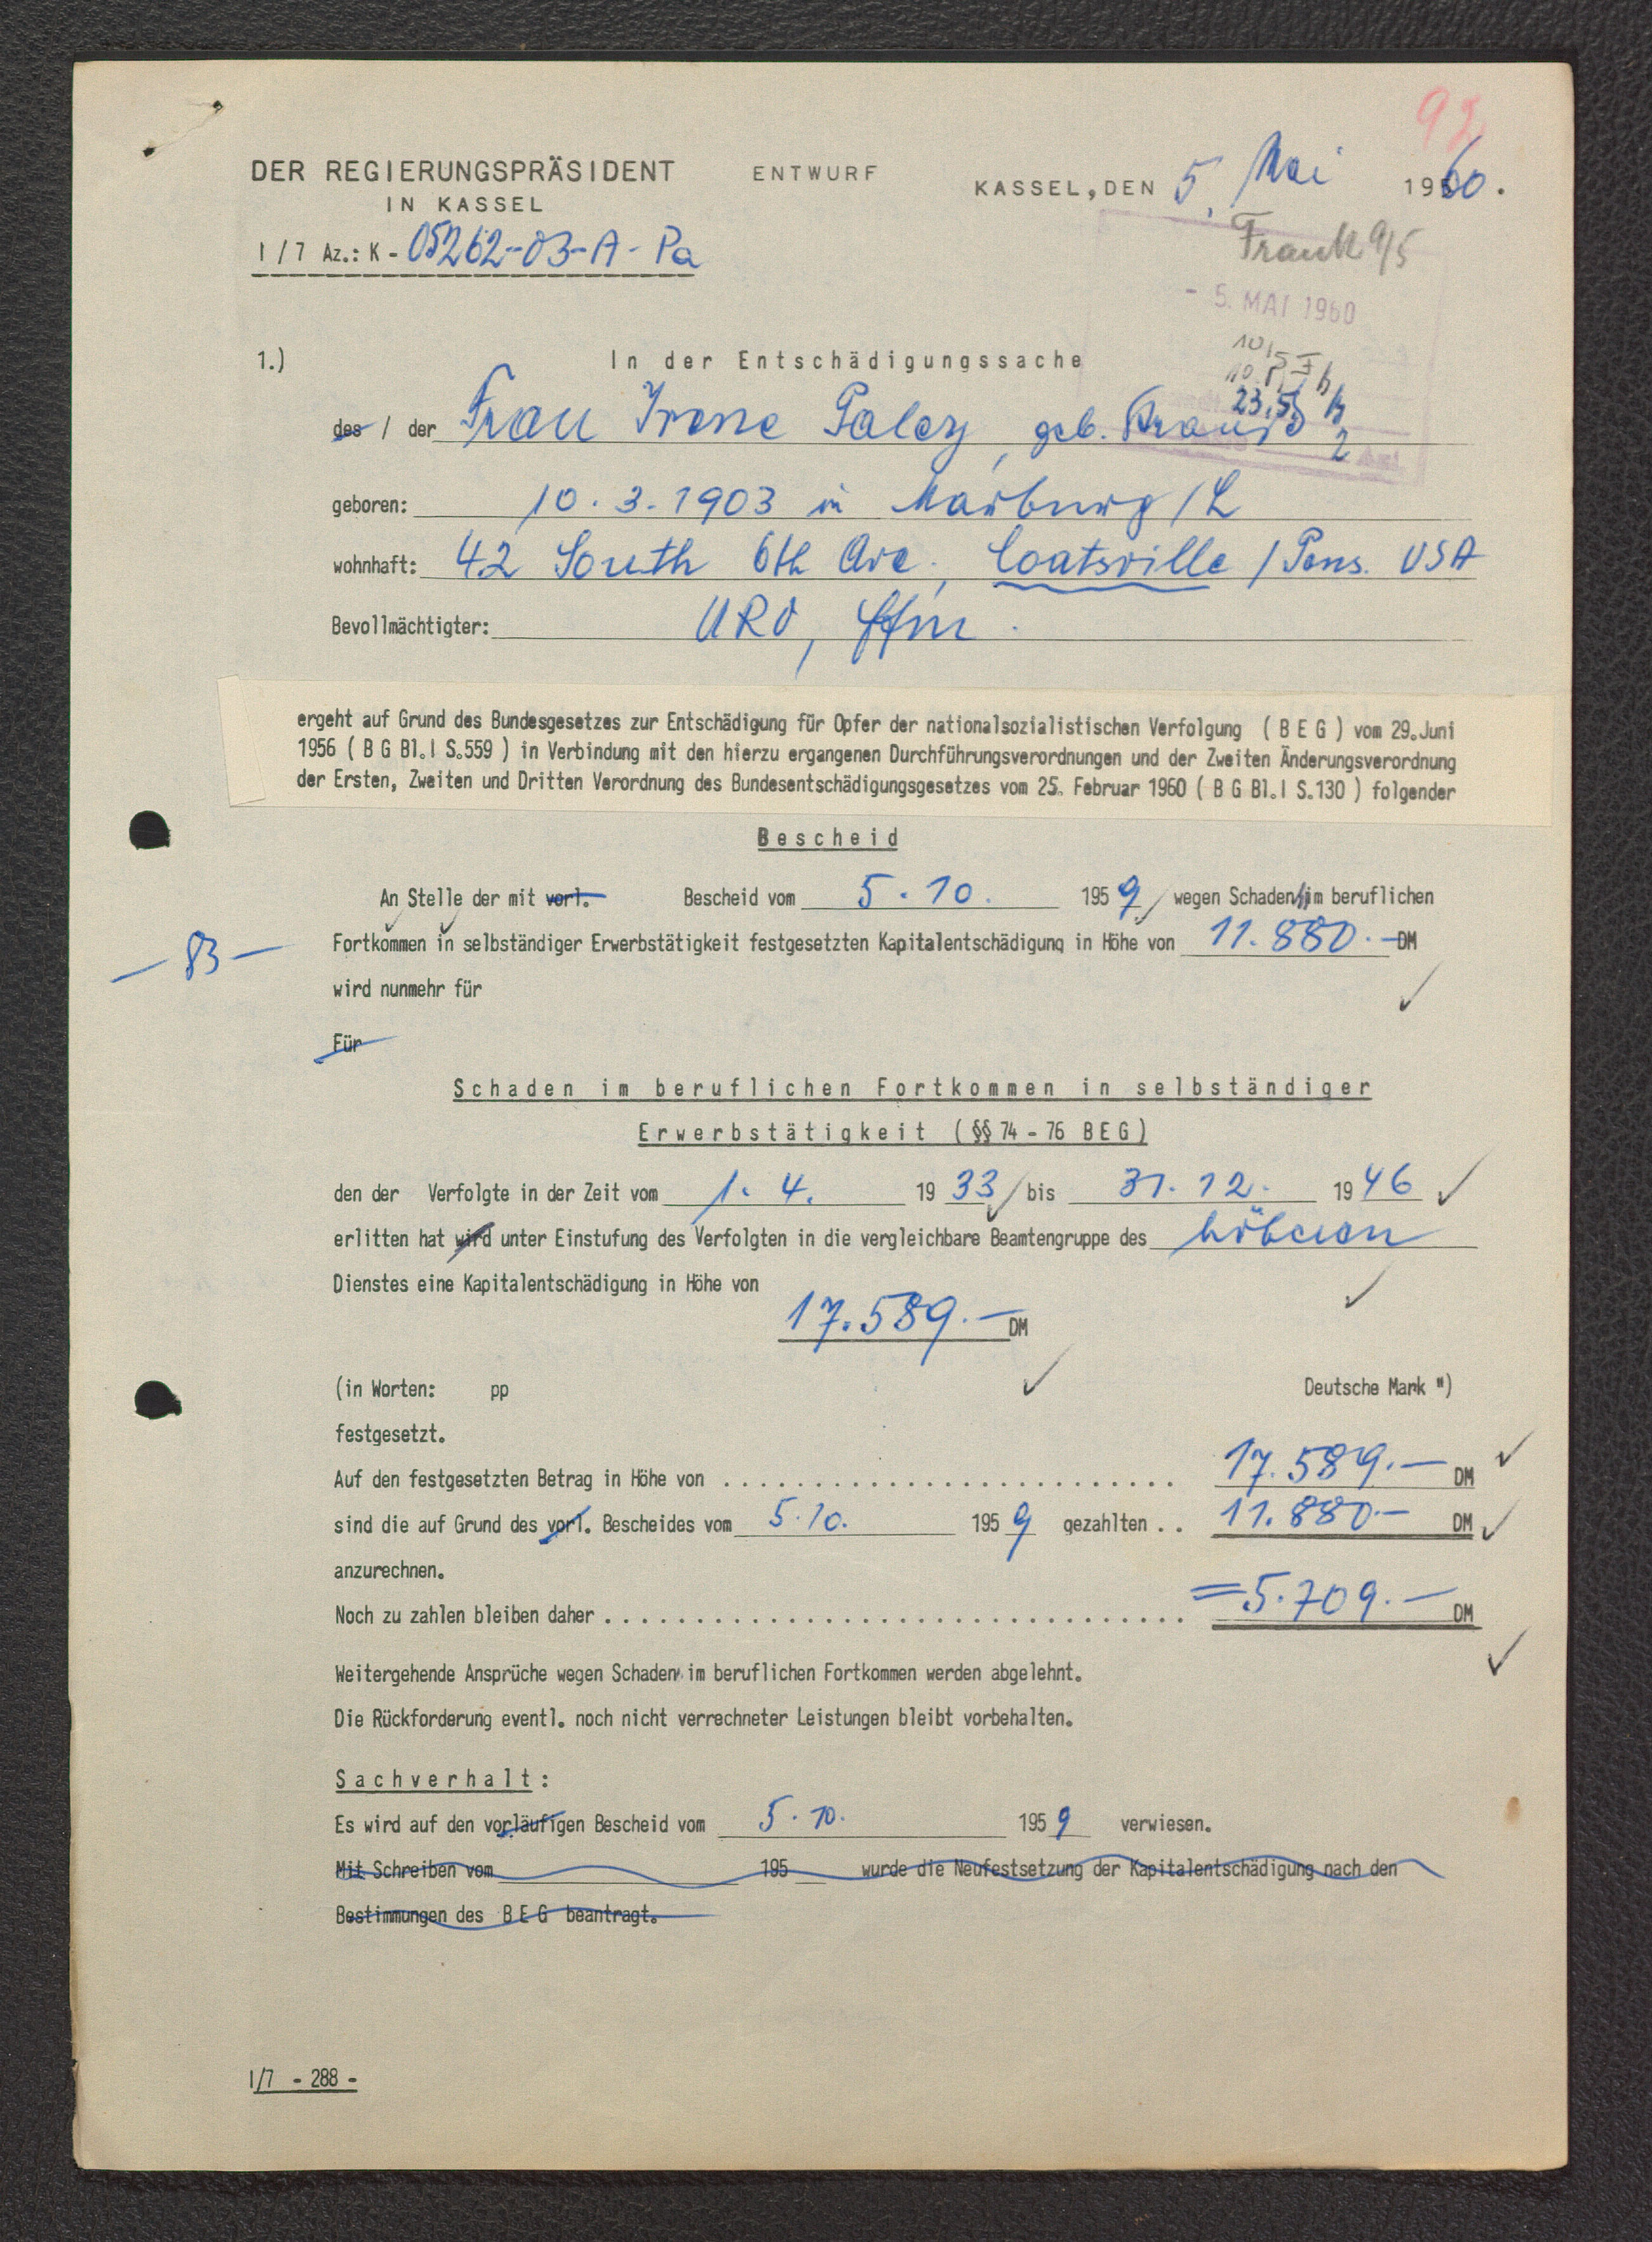 92
DER REGIERUNGSPRÄSIDENT ENTWURF KASSEL, DEN 5. Mai 1960.
IN KASSEL
I/7 Az.: K - 05262-03-A-Pa
Frank 9/5
- 5. MAI 1960
1.) In der Entschädigungssache
des / der Frau Irene Paley, geb. Krauß
geboren: 10.3.1903 in Marburg/L
wohnhaft: 42 South 6th Ave., Coatsville / Pens. USA
Bevollmächtigter: URO, Ffm.
ergeht auf Grund des Bundesgesetzes zur Entschädigung für Opfer der nationalsozialistischen Verfolgung ( B E G ) vom 29.Juni
1956 ( B G Bl.I S.559 ) in Verbindung mit den hierzu ergangenen Durchführungsverordnungen und der Zweiten Änderungsverordnung
der Ersten, Zweiten und Dritten Verordnung des Bundesentschädigungsgesetzes vom 25. Februar 1960 ( B G Bl.I S.130 ) folgender
Bescheid
An Stelle der mit vorl. Bescheid vom 5.10. 1959 wegen Schaden im beruflichen
- 83 - Fortkommen in selbständiger Erwerbstätigkeit festgesetzten Kapitalentschädigung in Höhe von 11.880.- DM
wird nunmehr für
Für
Schaden im beruflichen Fortkommen in selbständiger
Erwerbstätigkeit (§§ 74 - 76 BEG)
den der Verfolgte in der Zeit vom 1.4. 1933 bis 31.12. 1946
erlitten hat wird unter Einstufung des Verfolgten in die vergleichbare Beamtengruppe des höheren
Dienstes eine Kapitalentschädigung in Höhe von
17.589.- DM
(in Worten: pp Deutsche Mark ")
festgesetzt.
Auf den festgesetzten Betrag in Höhe von . . . . . . . . . . . . . . . . . . . . . . . . . 17.589.- DM
sind die auf Grund des vorl. Bescheides vom 5.10. 1959 gezahlten . . 11.880.- DM
anzurechnen.
Noch zu zahlen bleiben daher . . . . . . . . . . . . . . . . . . . . . . . . . . . . . . . . = 5.709.- DM
Weitergehende Ansprüche wegen Schaden im beruflichen Fortkommen werden abgelehnt.
Die Rückforderung eventl. noch nicht verrechneter Leistungen bleibt vorbehalten.
Sachverhalt:
Es wird auf den vorläufigen Bescheid vom 5.10. 1959 verwiesen.
Mit Schreiben vom 195 wurde die Neufestsetzung der Kapitalentschädigung nach den
Bestimmungen des B E G beantragt.
I/7 - 288 -